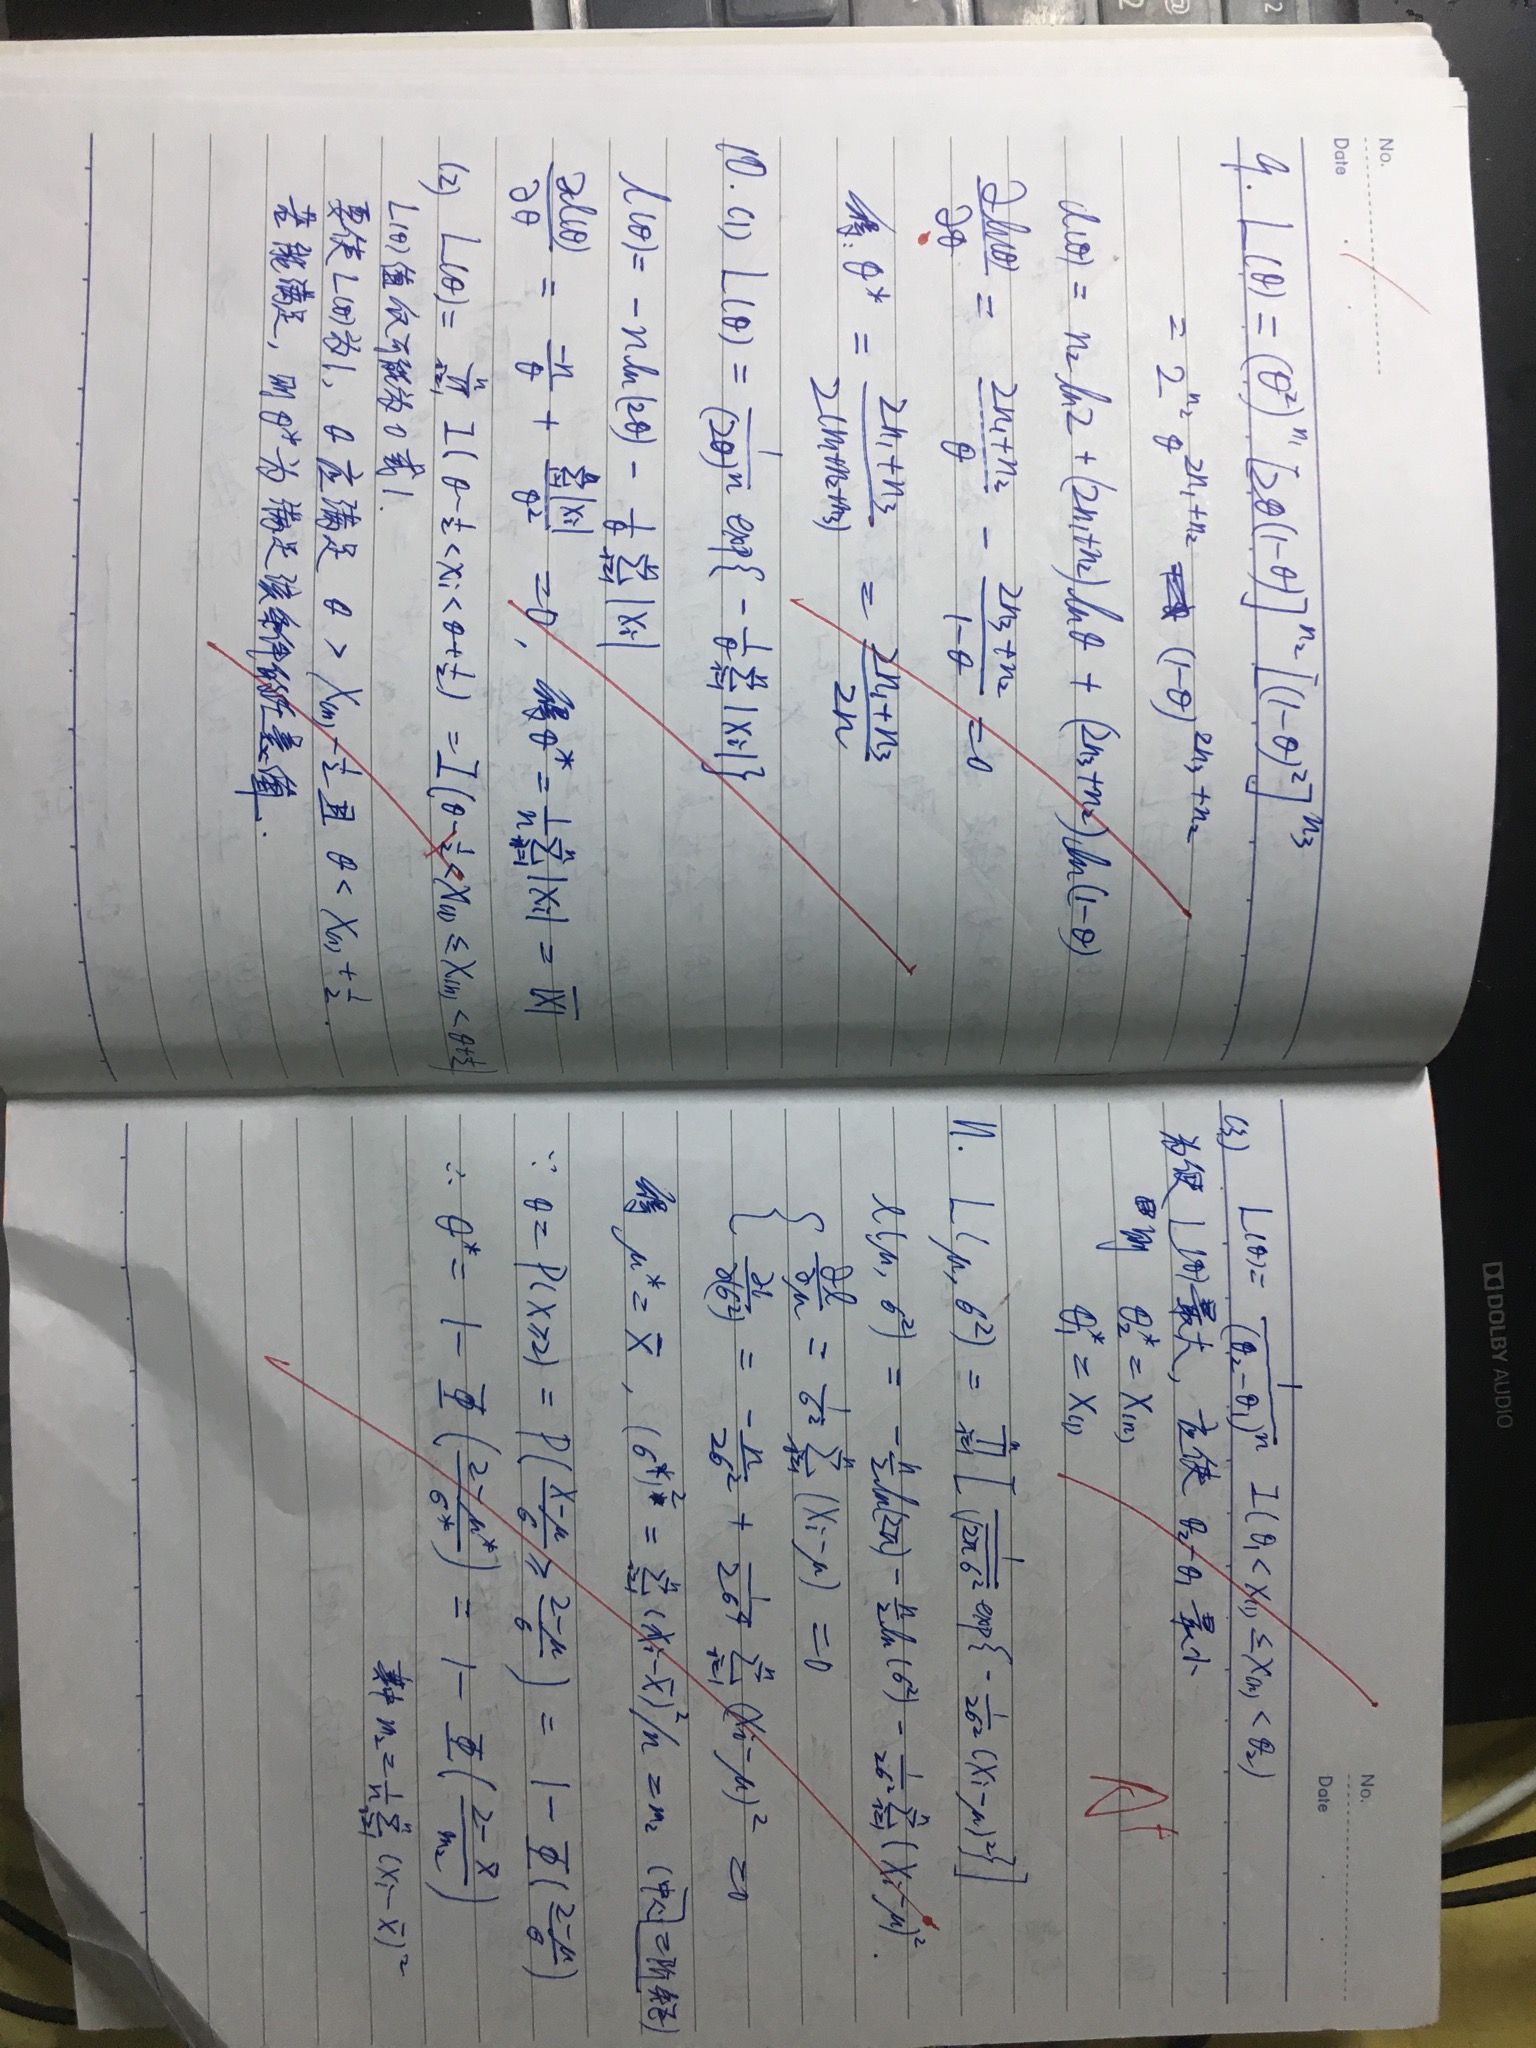 No.
Date
9. L(θ) = (θ²)^{n₁} [2θ(1-θ)]^{n₂} [(1-θ)²]^{n₃}
= 2^{n₂} θ^{2n₁+n₂} (1-θ)^{2n₃+n₂}
l(θ) = n₂ln2 + (2n₁+n₂)lnθ + (2n₃+n₂)ln(1-θ)
∂l(θ)/∂θ = (2n₁+n₂)/θ - (2n₃+n₂)/(1-θ) = 0
解: θ* = (2n₁+n₃)/2(n₁+n₂+n₃) = (2n₁+n₃)/2n
10. (1) L(θ) = 1/(2θ)ⁿ exp{-1/θ Σⁿᵢ₌₁|Xᵢ|}
l(θ) = -nln(2θ) - 1/θ Σⁿᵢ₌₁|Xᵢ|
∂l(θ)/∂θ = -n/θ + Σⁿᵢ₌₁|Xᵢ|/θ² = 0, 解θ* = 1/n Σⁿᵢ₌₁|Xᵢ| = |X|‾
(2) L(θ) = Πⁿᵢ₌₁ I(θ-½<Xᵢ<θ+½) = I(θ-½<X₍₁₎≤X₍ₙ₎<θ+½)
L(θ)值仅可能为0或1.
要使L(θ)为1, θ应满足 θ > X₍ₙ₎-½ 且 θ < X₍₁₎+½.
若能满足, 则θ*为满足该条件的任意值.
No.
Date
(3) L(θ) = 1/(θ₂-θ₁)ⁿ I(θ₁<X₍₁₎≤X₍ₙ₎<θ₂)
为使L(θ)最大, 应使 θ₂-θ₁ 最小
则 θ₂* = X₍ₙ₎
θ₁* = X₍₁₎
A+
11. L(μ, σ²) = Πⁿᵢ₌₁ [1/√(2πσ²) exp{-1/2σ² (Xᵢ-μ)²}]
l(μ, σ²) = -n/2 ln(2π) - n/2 ln(σ²) - 1/2σ² Σⁿᵢ₌₁(Xᵢ-μ)².
{ ∂l/∂μ = 1/σ² Σⁿᵢ₌₁(Xᵢ-μ) = 0
∂l/∂(σ²) = -n/2σ² + 1/2σ⁴ Σⁿᵢ₌₁(Xᵢ-μ)² = 0
解 μ* = X̄, (σ*)² = Σⁿᵢ₌₁(Xᵢ-X̄)²/n = m₂ (中心二阶矩)
∵ θ = P(X≥2) = P((X-μ)/σ ≥ (2-μ)/σ) = 1 - Φ((2-μ)/σ)
∴ θ* = 1 - Φ((2-μ*)/σ*) = 1 - Φ((2-X̄)/m₂)
其中 m₂ = 1/n Σⁿᵢ₌₁(Xᵢ-X̄)²
DOLBY AUDIO